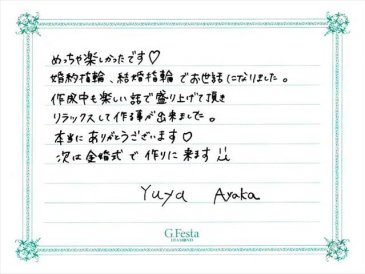 めっちゃ楽しかったです♡
婚約指輪、結婚指輪でお世話になりました。
作成中も楽しい話で盛り上げて頂き
リラックスして作る事が出来ました。
本当にありがとうございます♡
次は金婚式で作りに来ます!!
Yuya Ayaka
G.Festa
DIAMOND